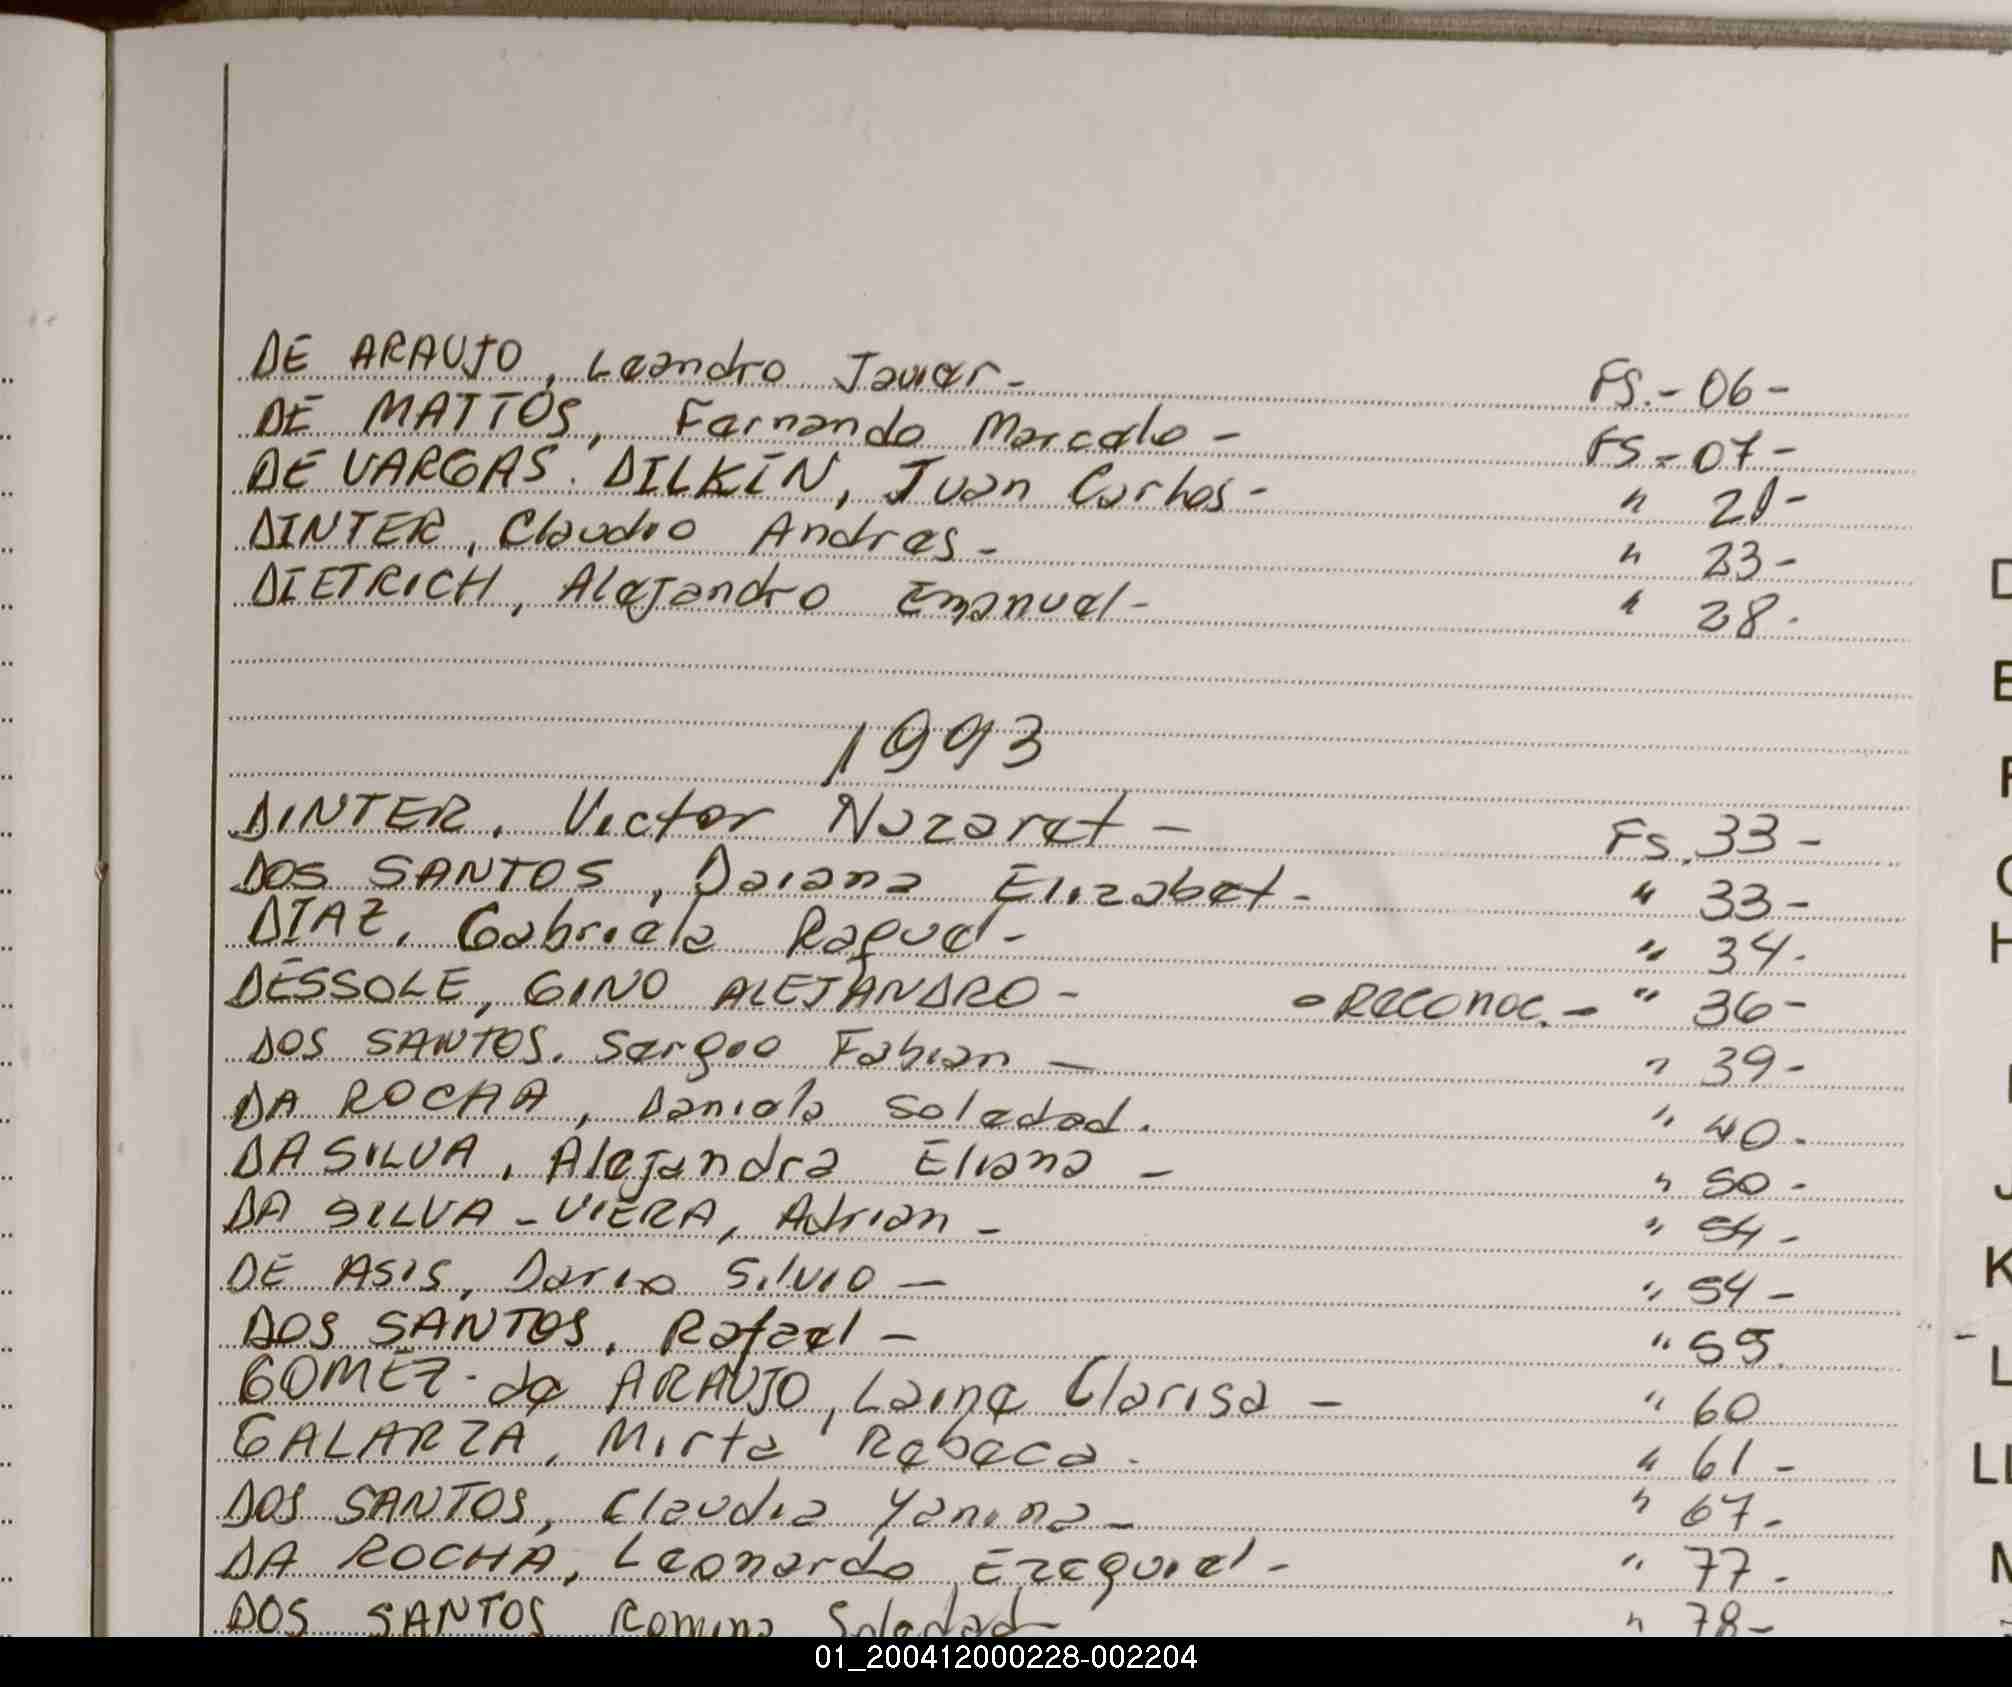 DE ARAUJO, Leandro Javier - Fs. - 06 -
DE MATTOS, Fernando Marcelo - Fs - 07 -
DE VARGAS. DILKIN, Juan Carlos - " 21 -
DINTER, Claudio Andres - " 23 -
DIETRICH, Alejandro Emanuel - " 28 -
1993
DINTER, Victor Nazaret - Fs. 33 -
DOS SANTOS, Daiana Elizabet - " 33 -
DIAZ, Gabriela Raquel - " 34 -
DESSOLE, GINO ALEJANDRO - Reconoc. - " 36 -
DOS SANTOS, Sergio Fabian - " 39 -
DA ROCHA, Daniela Soledad. " 40 -
DA SILVA, Alejandra Eliana - " 50 -
DA SILVA - VIERA, Adrian - " 54 -
DE ASIS, Dario Silvio - " 54 -
DOS SANTOS, Rafael - " 55
GOMEZ - de ARAUJO, Laine Clarisa - " 60
GALARZA, Mirta Rebeca. " 61 -
DOS SANTOS, Claudia Yanina - " 67 -
DA ROCHA, Leonardo Ezequiel - " 77 -
DOS SANTOS Romina Soledad - " 78 -
J
K
L
LL
M
01_200412000228-002204